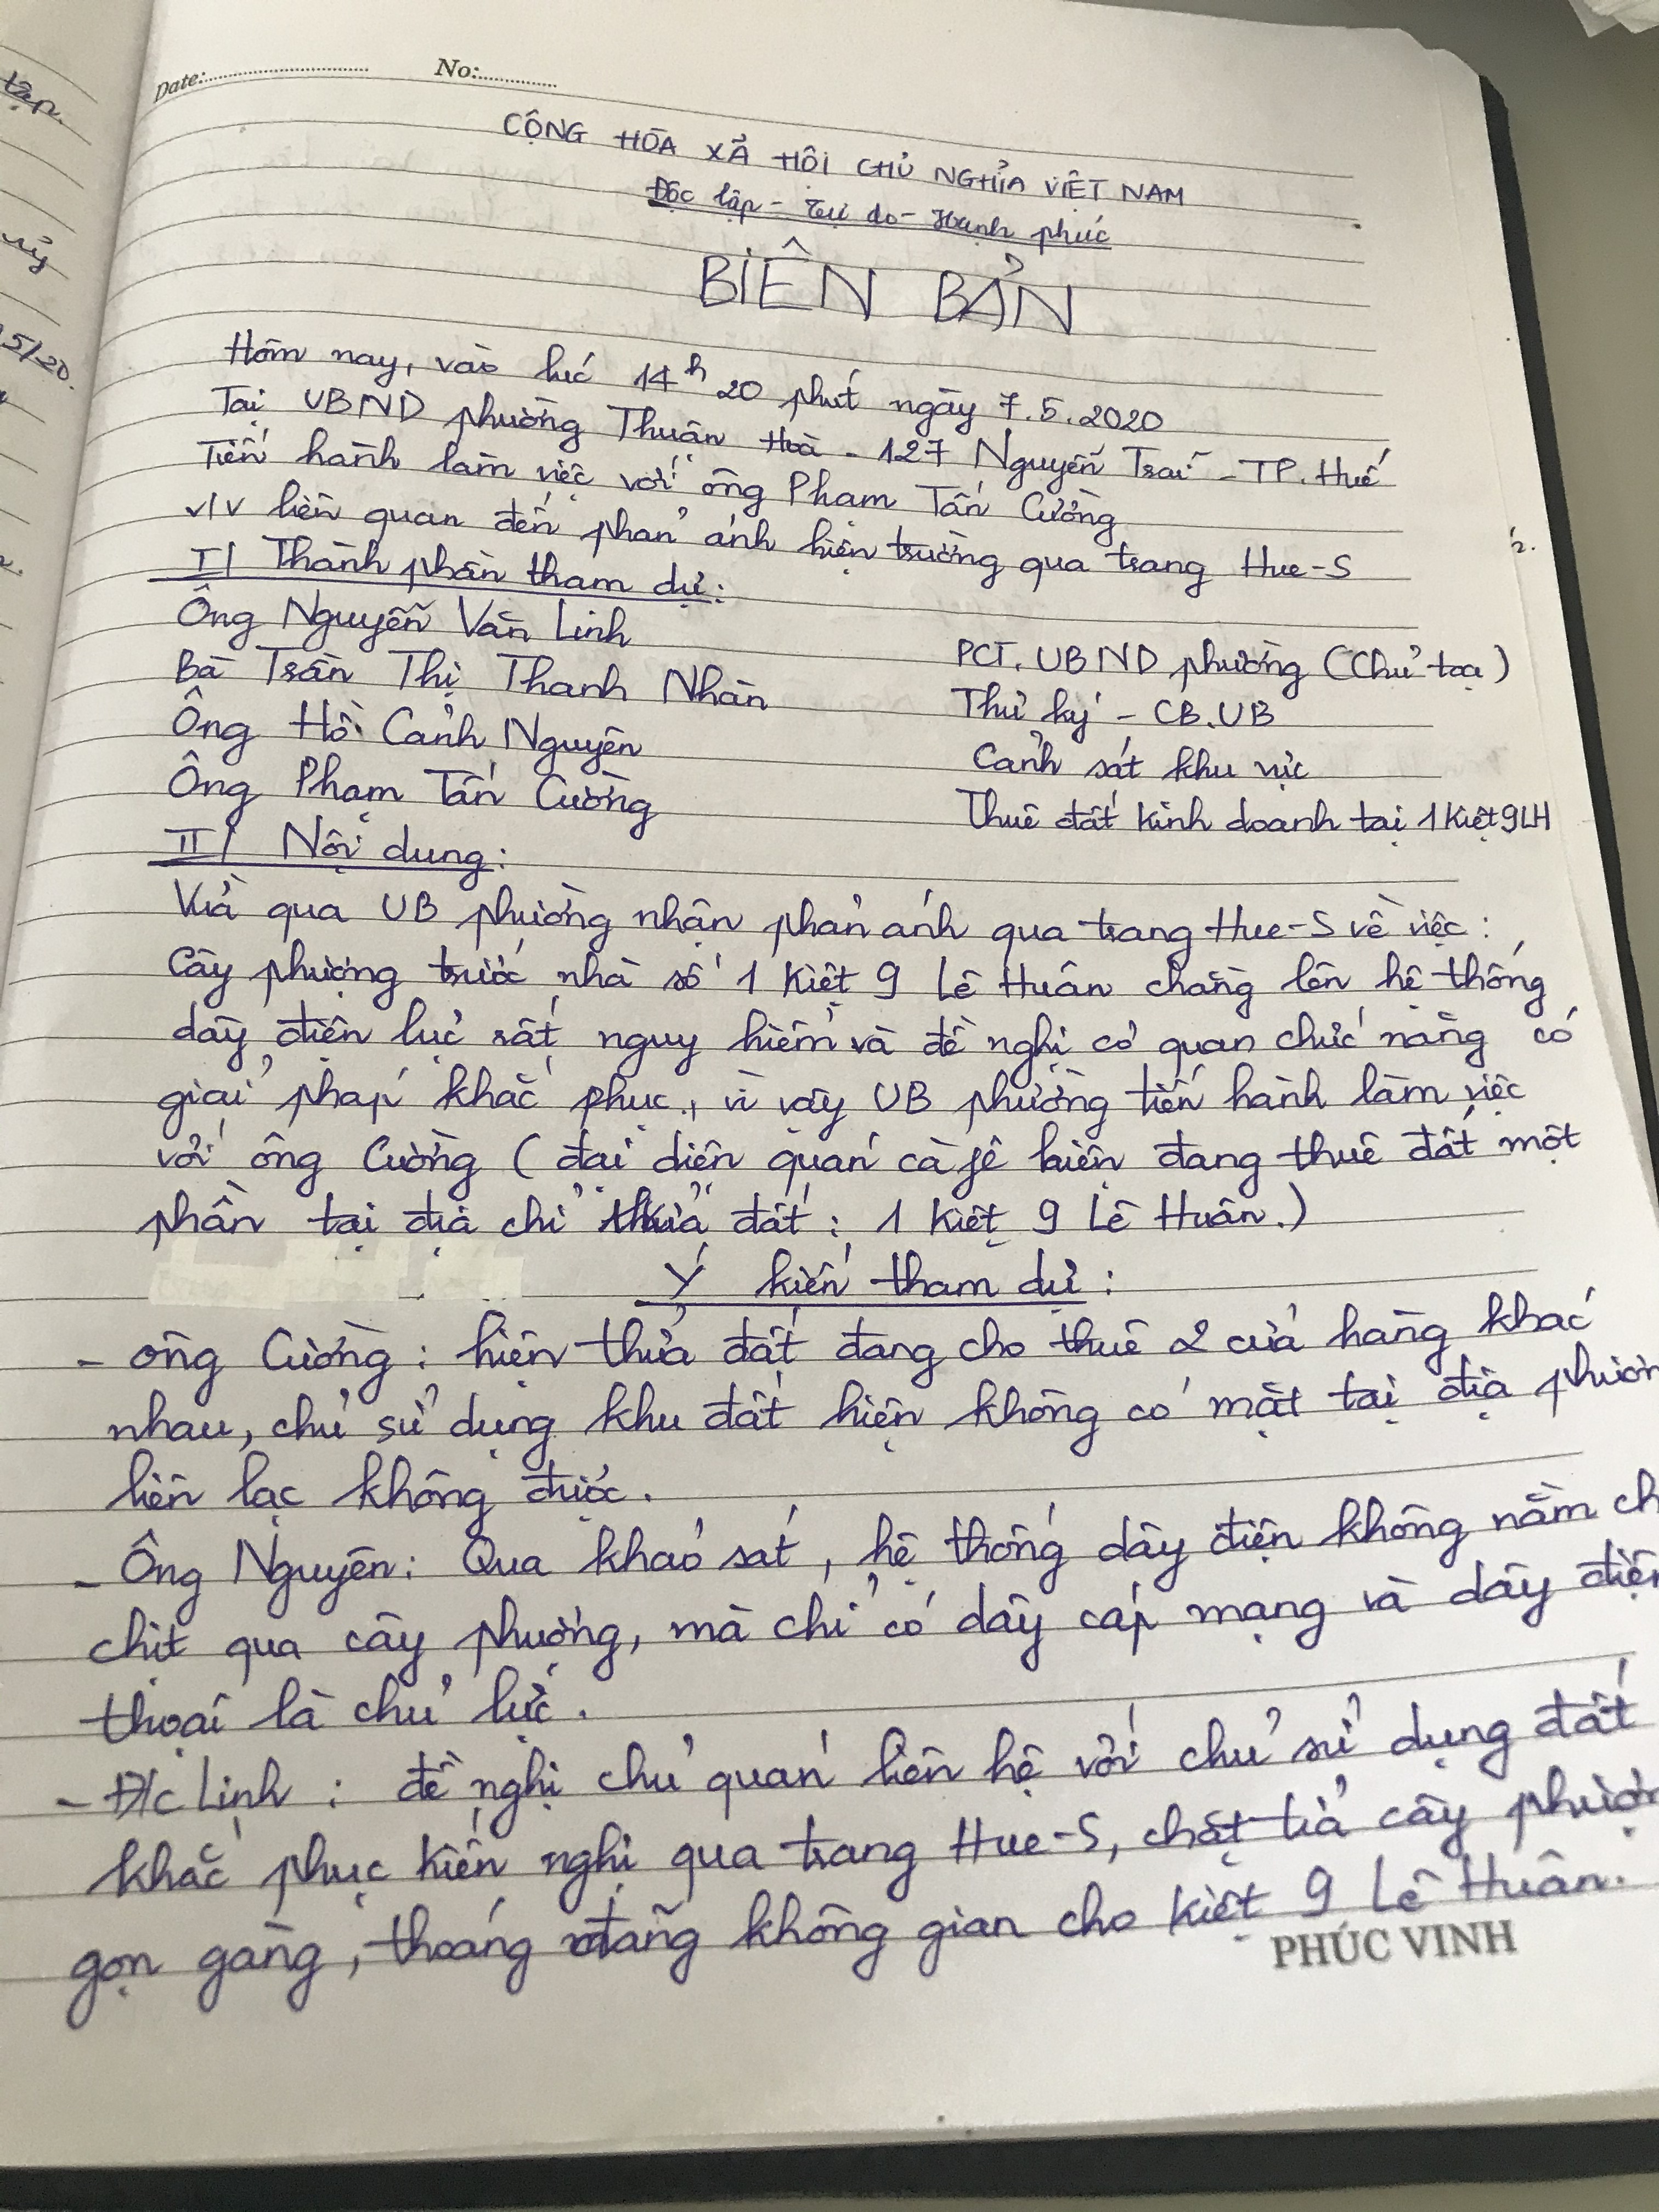 tập.
5/20.
Date: No:
CỘNG HÒA XÃ HỘI CHỦ NGHĨA VIỆT NAM
Độc lập - Tự do - Hạnh phúc
BIÊN BẢN
Hôm nay, vào lúc 14h 20 phút ngày 7.5.2020
Tại UBND phường Thuận Hoà - 127 Nguyễn Trãi - TP. Huế
Tiến hành làm việc với ông Phạm Tấn Cường
v/v liên quan đến phản ánh hiện trường qua trang Hue-S
I/ Thành phần tham dự:
Ông Nguyễn Văn Linh PCT. UBND phường (Chủ toạ)
Bà Trần Thị Thanh Nhàn Thư ký - CB.UB
Ông Hồ Cảnh Nguyên Cảnh sát khu vực
Ông Phạm Tấn Cường Thuê đất kinh doanh tại 1 Kiệt 9 LH
II/ Nội dung:
Vừa qua UB phường nhận phản ánh qua trang Hue-S về việc:
Cây phượng trước nhà số 1 Kiệt 9 Lê Huân chằng lên hệ thống
dây điện lực rất nguy hiểm và đề nghị cơ quan chức năng có
giải pháp khắc phục, vì vậy UB phường tiến hành làm việc
với ông Cường (đại diện quán cà fê hiện đang thuê đất một
phần tại địa chỉ thửa đất: 1 Kiệt 9 Lê Huân.)
Ý kiến tham dự:
- ông Cường: hiện thửa đất đang cho thuê 2 cửa hàng khác
nhau, chủ sử dụng khu đất hiện không có mặt tại địa phươn
liên lạc không được.
- Ông Nguyên: Qua khảo sát, hệ thống dây điện không nằm ch
chịt qua cây phượng, mà chỉ có dây cáp mạng và dây điện
thoại là chủ lực.
- Đ/c Linh: đề nghị chủ quán liên hệ với chủ sử dụng đất
khắc phục kiến nghị qua trang Hue-S, chặt tỉa cây phượn
gọn gàng, thoáng đãng không gian cho kiệt 9 Lê Huân.
PHÚC VINH